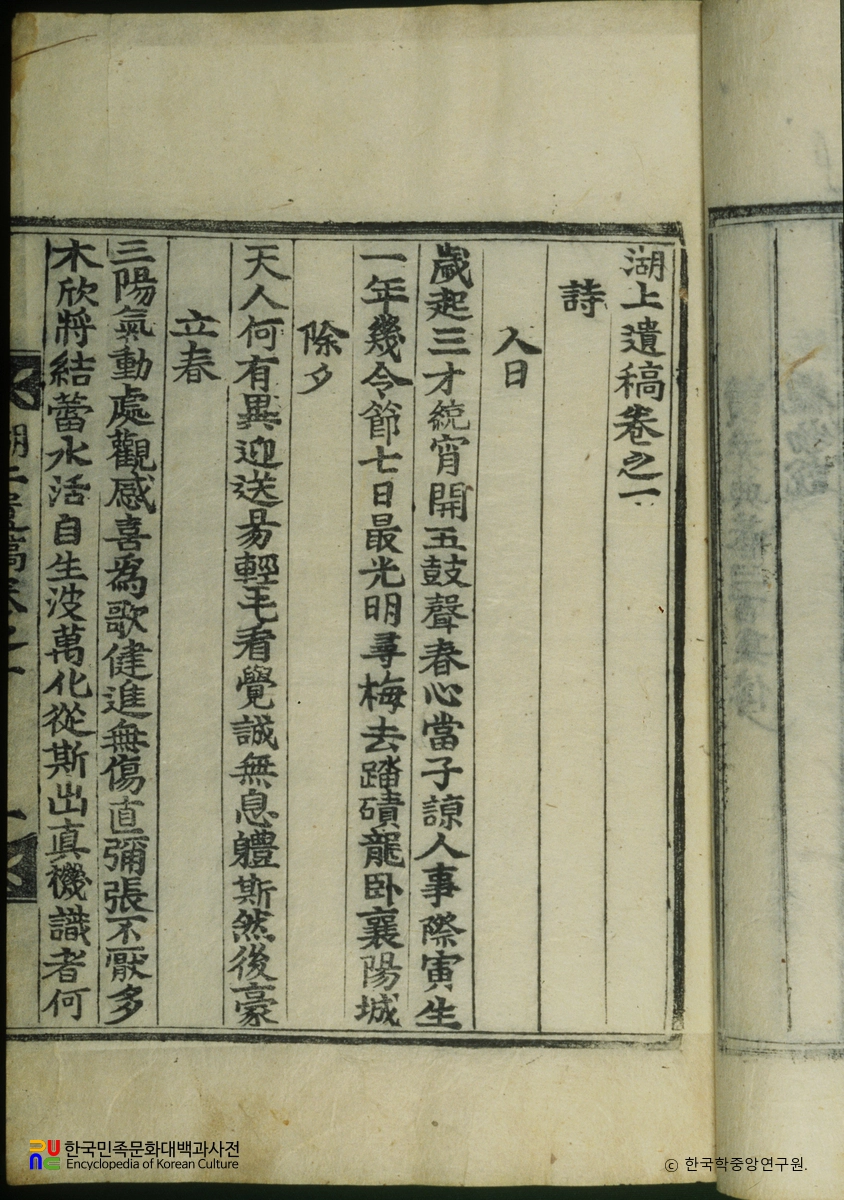 湖上遺稿卷之一
詩
人日
歲起三才統宵開五鼓聲春心當子諒人事際寅生
一年幾令節七日最光明尋梅去踏磧龍卧襄陽城
除夕
天人何有異迎送昜輕毛看覺誠無息軆斯然後豪
立春
三陽氣動處觀感喜爲歌健進無傷直彌張不厭多
木欣將結蕾水活自生波萬化從斯出真機識者何
한국민족문화대백과사전
Encyclopedia of Korean Culture
ⓒ 한국학중앙연구원.